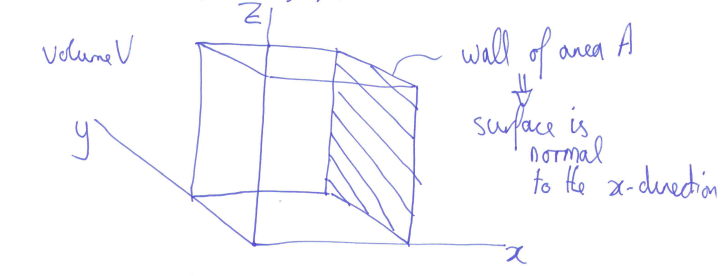 z
volume V
wall of area A
y
surface is
normal
to the x-direction
x